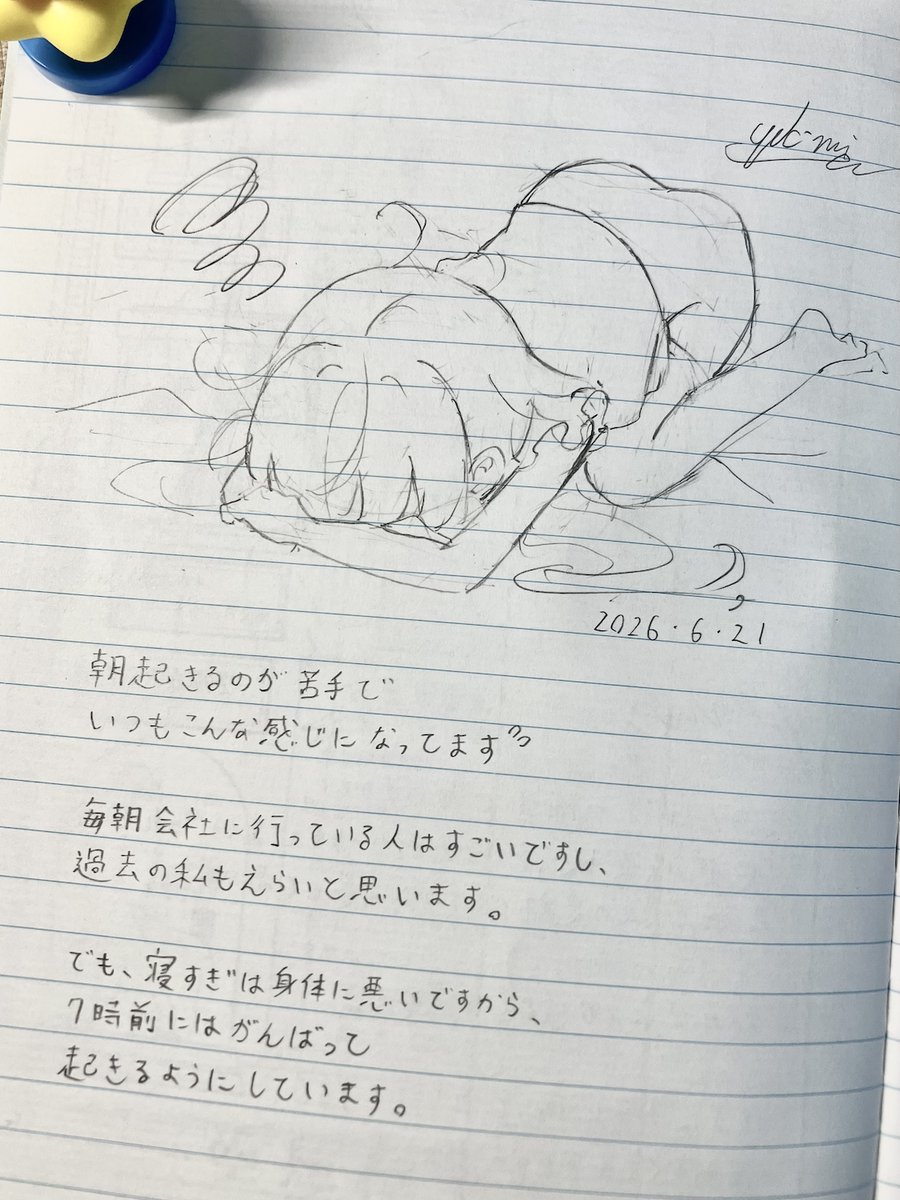 2026.6.21
朝起きるのが苦手で
いつもこんな感じになってます
毎朝会社に行っている人はすごいですし、
過去の私もえらいと思います。
でも、寝すぎは身体に悪いですから、
7時前にはがんばって
起きるようにしています。